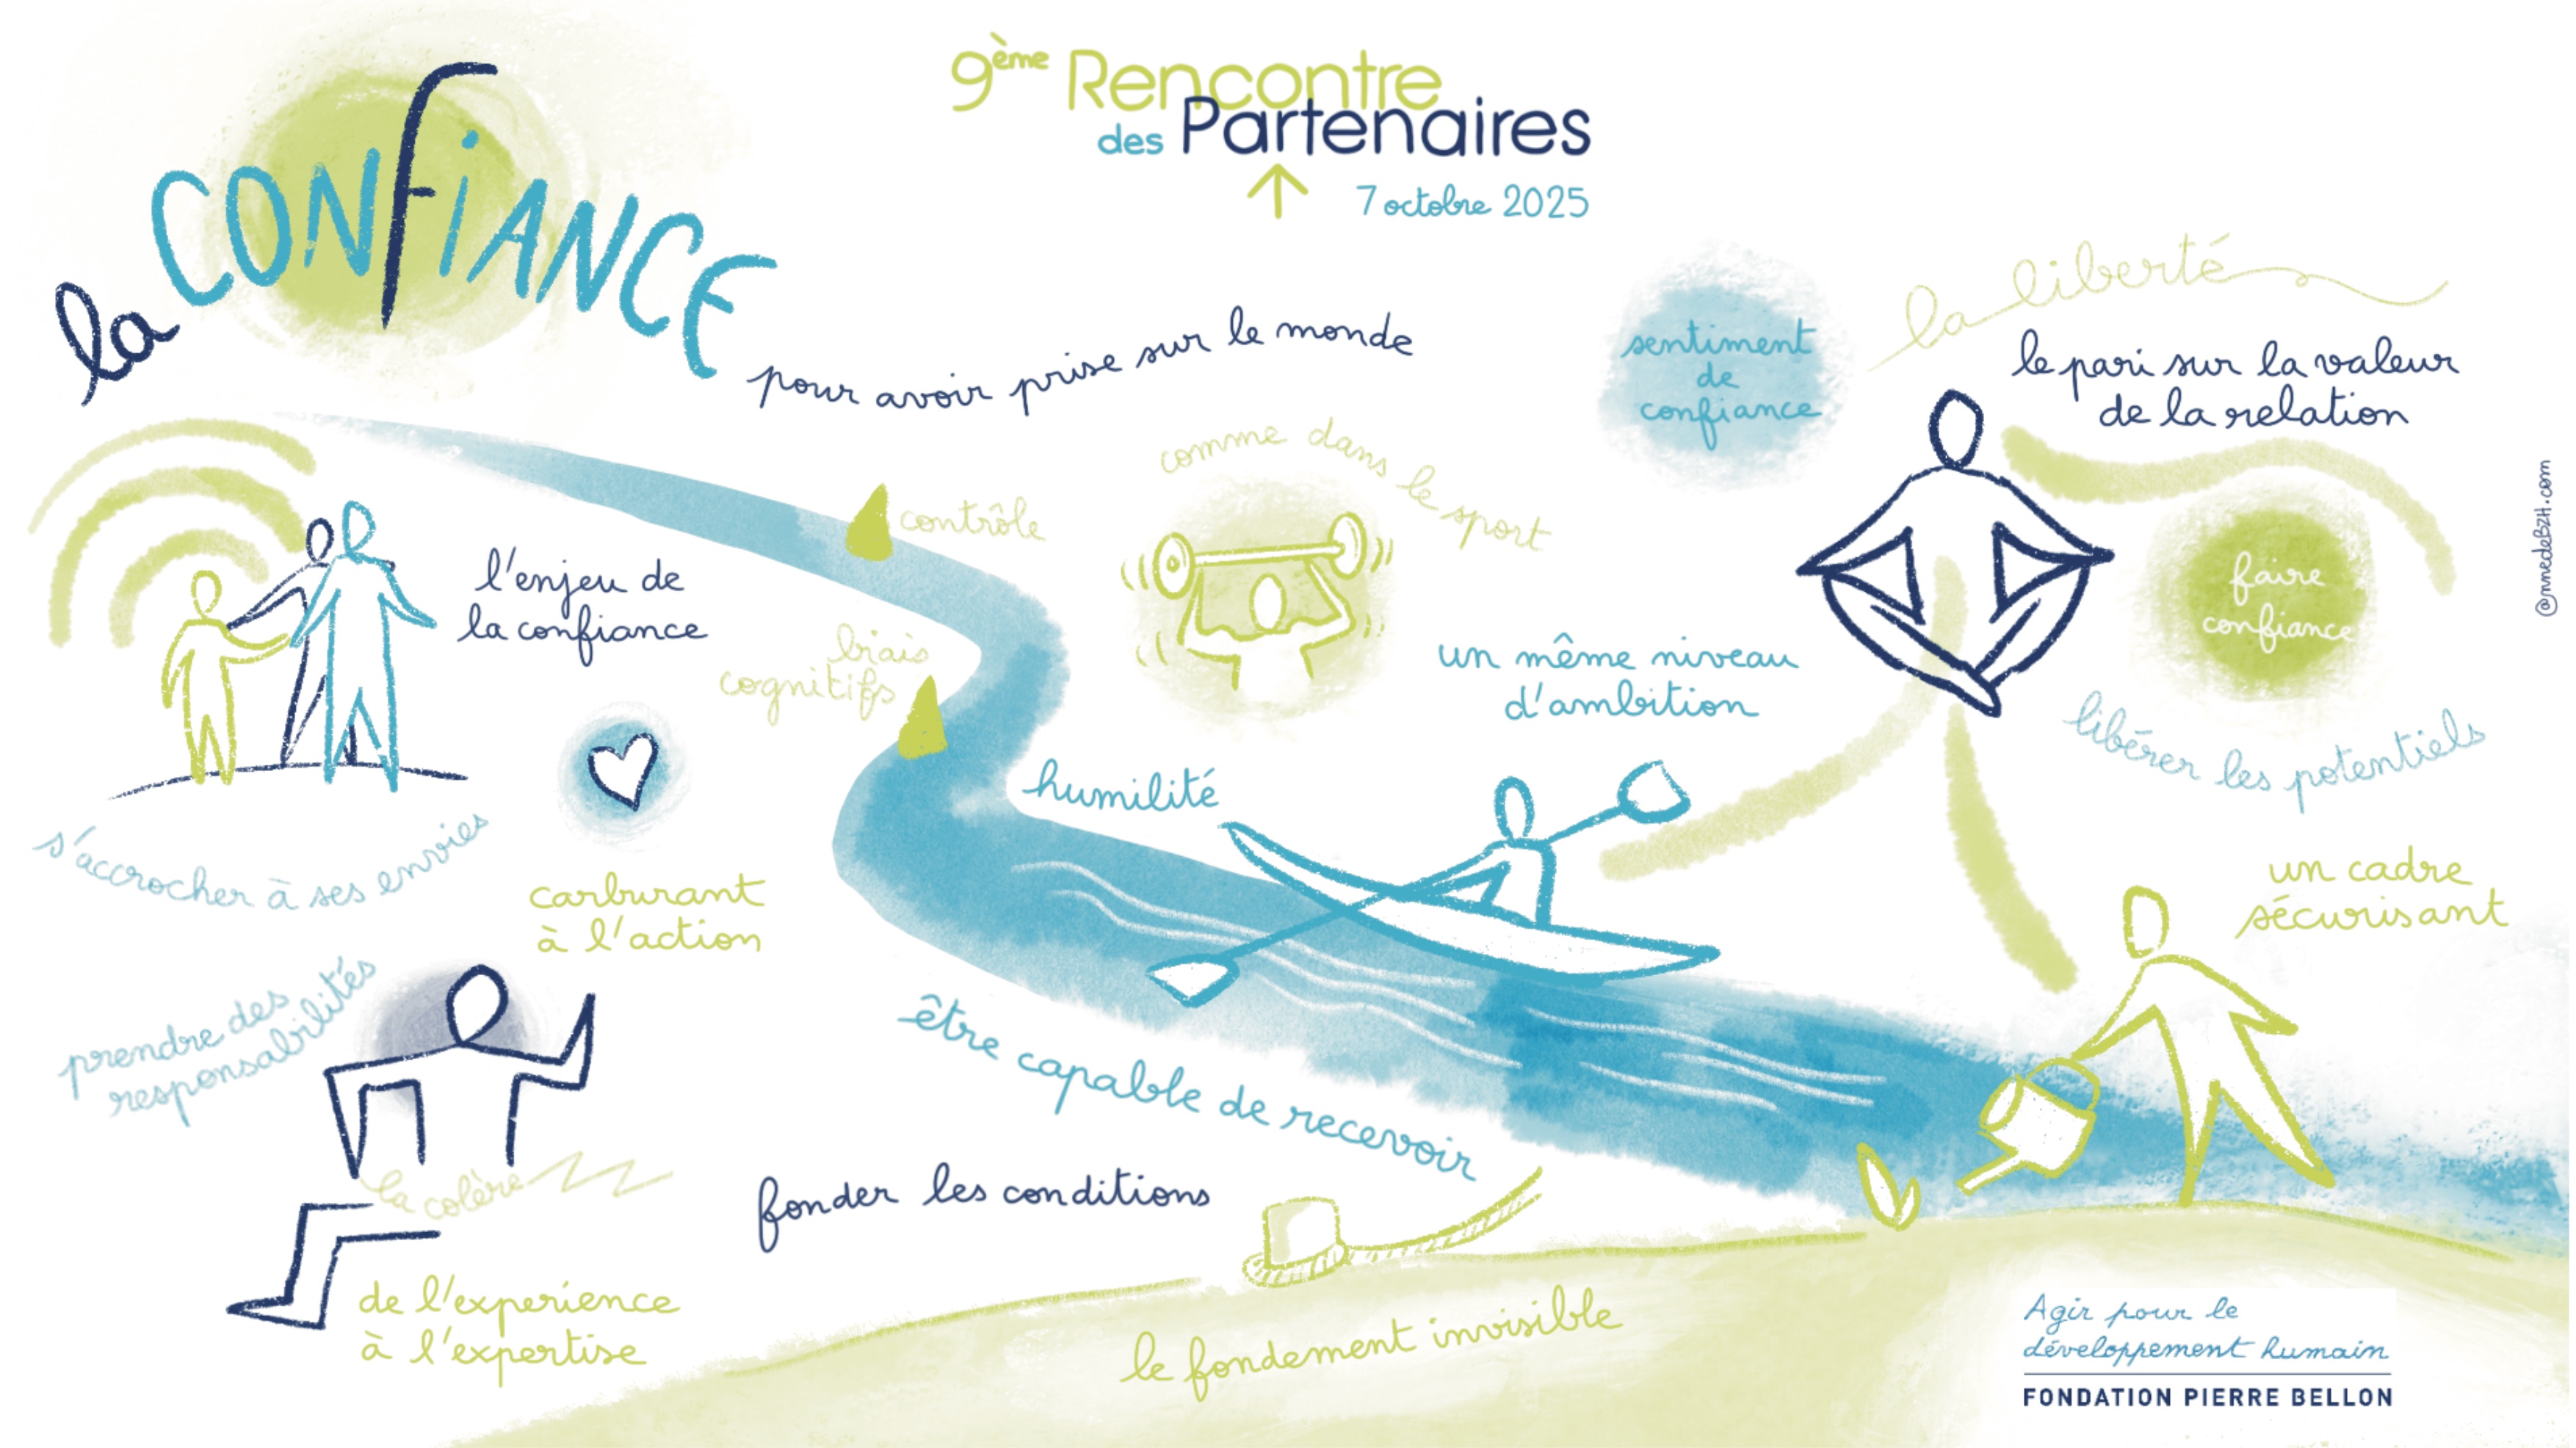 9ème Rencontre
des Partenaires
7 octobre 2025
la CONFiANCE
pour avoir prise sur le monde
sentiment
de
confiance
la liberté
le pari sur la valeur
de la relation
faire
confiance
libérer les potentiels
@nnedeBZH.com
comme dans le sport
contrôle
biais
cognitifs
l'enjeu de
la confiance
un même niveau
d'ambition
humilité
s'accrocher à ses envies
carburant
à l'action
un cadre
sécurisant
prendre des
responsabilités
être capable de recevoir
la colère
fonder les conditions
de l'experience
à l'expertise
le fondement invisible
Agir pour le
développement humain
FONDATION PIERRE BELLON